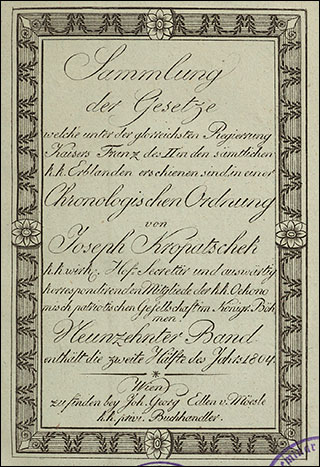 Sammlung
der Gesetze
welche unter der glorreichsten Regierung
Kaisers Franz des II in den sämtlichen
k.k. Erblanden erschienen sind in einer
Chronologischen Ordnung
von
Joseph Kropatschek
k.k. wirkl. Hof-Secretär und auswärtig
korrespondirenden Mitgliede der k.k. Oekono
misch patriotischen Gesellschaft im Königr. Böh
men.
Neunzehnter Band
enthält die zweite Hälfte des Jahrs 1804
*
Wien
zu finden bey Joh. Georg Edlen v. Mösle
k.k. priv. Buchhandler.